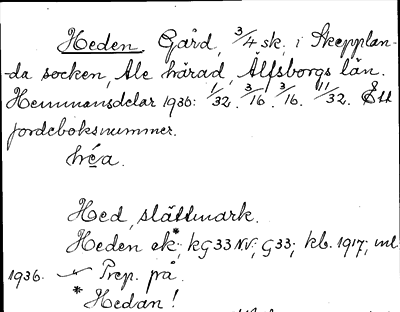 Heden Gård, 3/4 sk, i Skepplan-
da socken, Ale härad, Älfsborgs län.
Hemmansdelar 1930: 1/32. 3/16. 3/16. 11/32. Ett
jordeboksnummer.
hèa.
Hed, slättmark.
Heden ek*, kG33NV; G33; kb. 1917; ml
1936. Prep. på.
*Hedan!